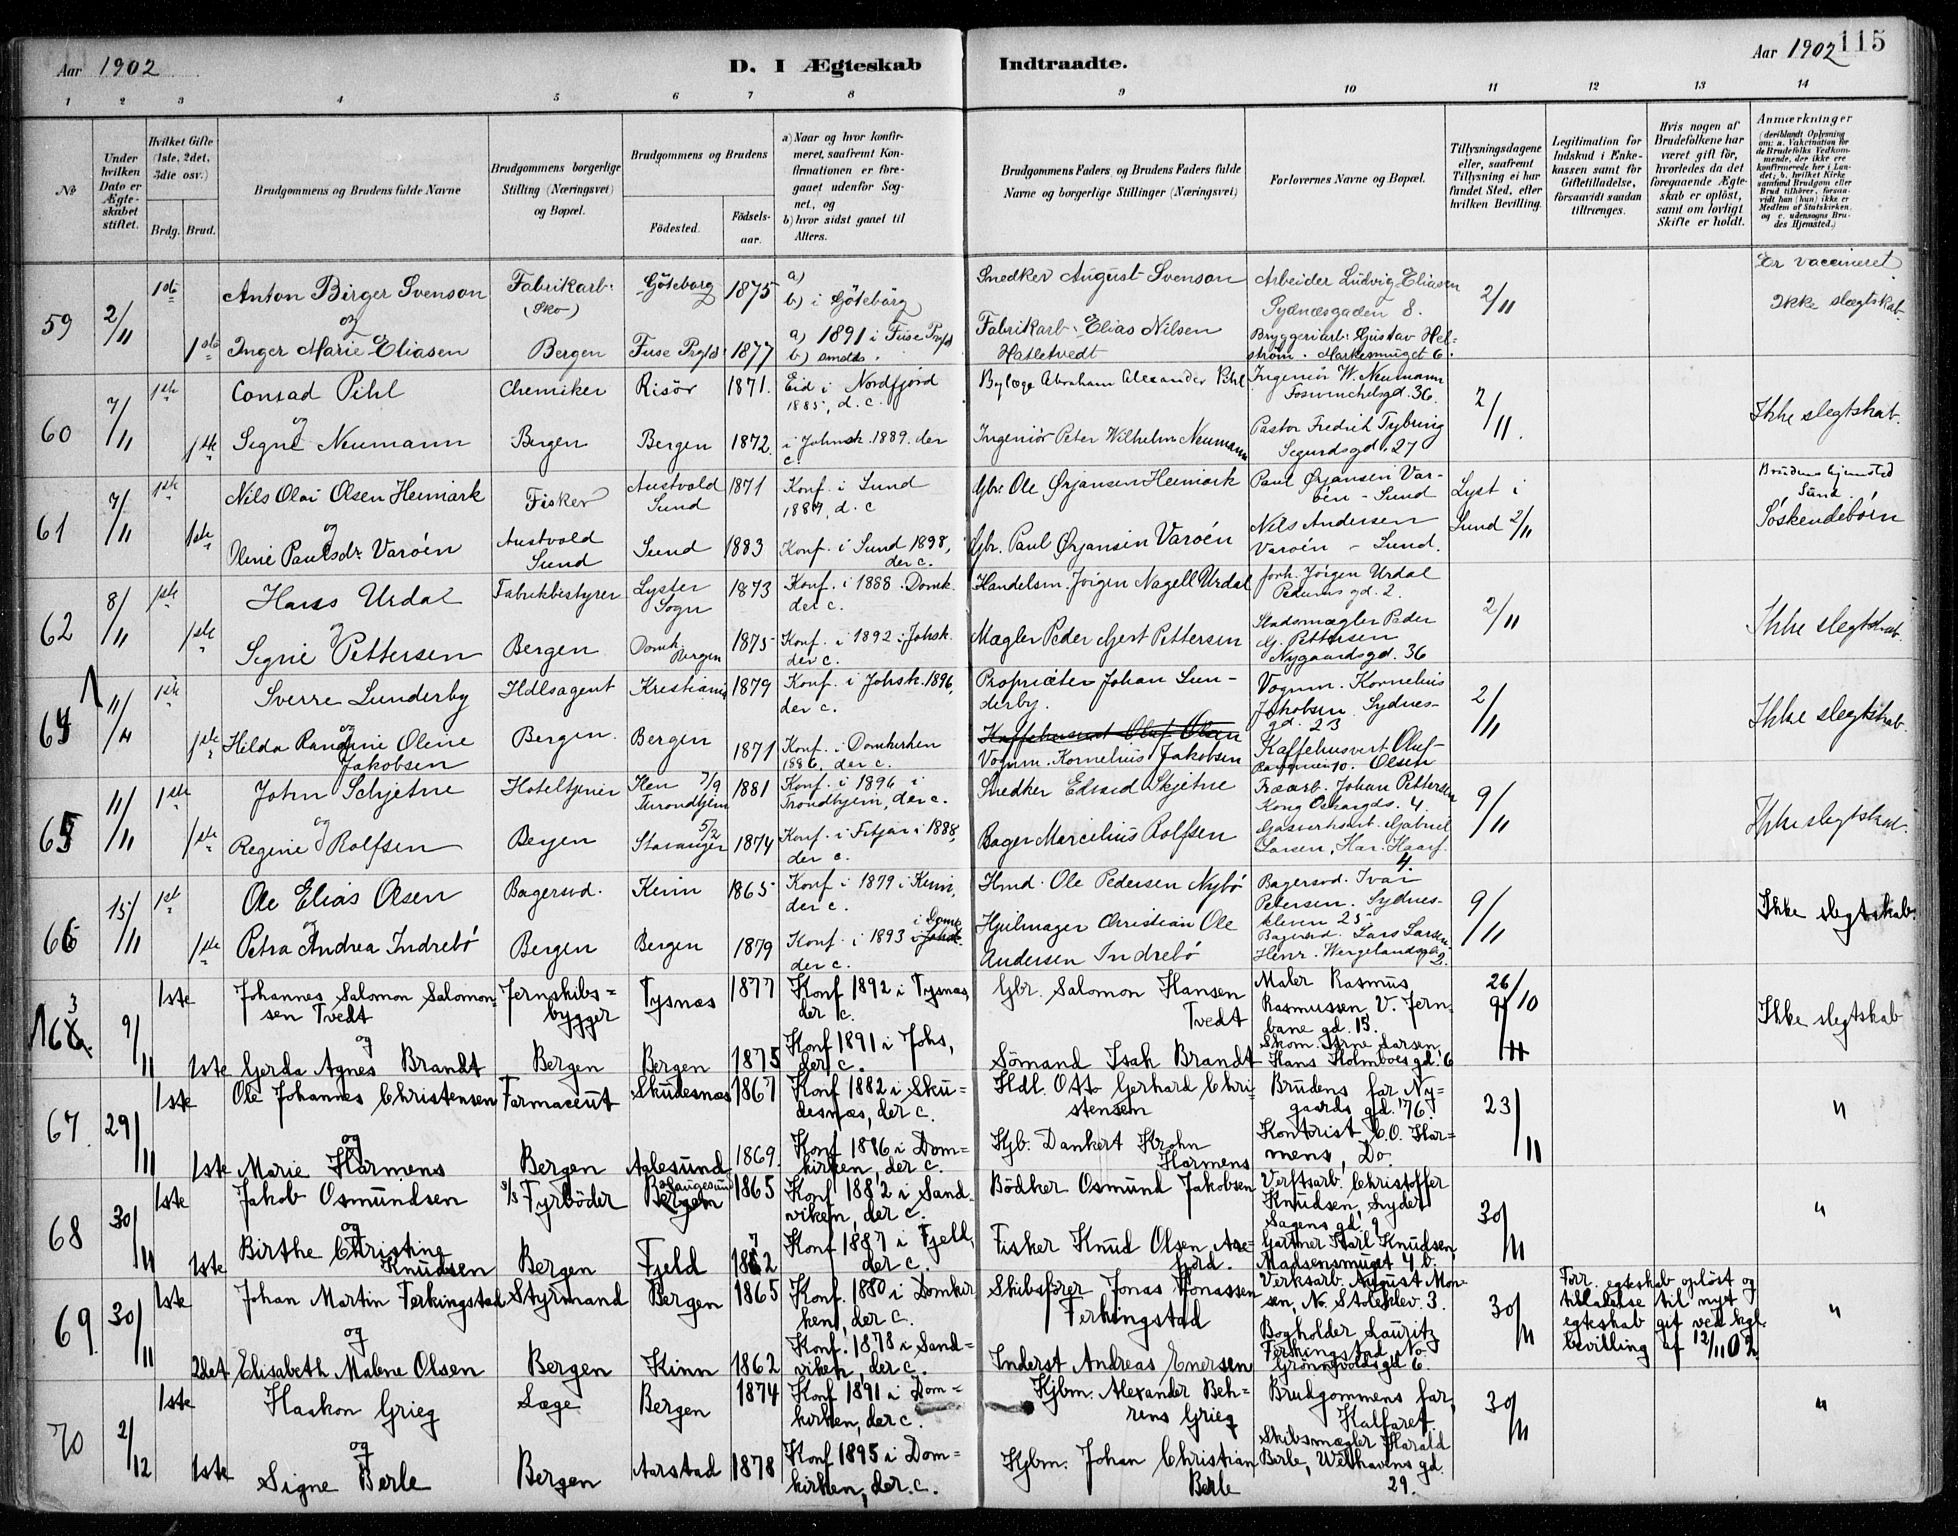 115
Aar 1902
D. I Ægteskab Indtraadte.
Aar 1902
1 2 3 4 5 6 7 8 9 10 11 12 13 14
No
Under hvilken Dato er Ægteskabet stiftet.
Hvilket Gifte (1ste, 2det, 3die osv.)
Brdg. Brud.
Brudgommens og Brudens fulde Navne
Brudgommens borgerlige Stilling (Næringsvei) og Bopæl.
Brudgommens og Brudens
Födested.
Födselsaar.
a) Naar og hvor konfirmeret, saafremt Konfirmationen er foregaaet udenför Sognet, og
b) hvor sidst gaaet til Alters.
Brudgommens Faders og Brudens Faders fulde Navne og borgerlige Stillinger (Næringsvei)
Forlovernes Navne og Bopæl.
Tillysningsdagene eller, saafremt Tillysning ei har fundet Sted, efter hvilken Bevilling.
Legitimation for Indskud i Enkekassen samt for Giftetilladelse, forsaavidt saadan tiltrænges.
Hvis nogen af Brudefolkene har været gift för, hvorledes da det foregaaende Ægteskab er oplöst, samt om lovligt Skifte er holdt.
Anmærkninger
(deriblandt Oplysning om: a. Vakcination for de Brudefolks Vedkommende, der ikke ere konfirmerede her i Landet; b. hvilket Kirkesamfund Brudgom eller Brud tilhörer, forsaavidt han (hun) ikke er Medlem af Statskirken, og c. udensogns Brudes Hjemsted.)
59 2/11 1ste Anton Birger Svenson Fabrikarb. (Sko) Göteborg 1875 a) b) i Göteborg Snedker August Svenson Arbeider Ludvig Eliasen Sydnæsgaden 8. 2/11 Er vaccineret Ikke slægtskab.
og
1ste Inger Marie Eliasen Bergen Fuse Prgjld 1877 a) 1891 i Fuse Prgjld b) smdds. Fabrikarb. Elias Nilsen Hatletvedt Bryggeriarb. Gustav Helström. Markesmuget 6.
60 7/11 1ste Conrad Pihl Chemiker Risör 1871. Eid i Nordfjord 1885, d. c. Bylæge Abraham Alexander Pihl Ingeniör W. Neumann Fosvinckelsgd. 36. 2/11. Ikke slegtskab.
og
1ste Signe Neumann Bergen Bergen 1872. i Johnsk. 1889. der c. Ingeniör Peter Wilhelm Neumann Pastor Fredrik Tybring Sigurdsgd. 27
61 7/11 1ste Nils Olai Olsen Heimark Fisker Austvold Sund 1871 Konf. i Sund 1887, d. c Gbr. Ole Ørjansen Heimark Paul Ørjansen Varöén - Sund Lyst i Sund 2/11 Brudens hjemsted Sund. Söskendebörn
og
1ste Oline Paulsdr. Varöén Austvold Sund Sund 1883 Konf. i Sund 1898, der c. Gbr. Paul Ørjansen Varöén Nils Andersen Varöén - Sund.
62 8/11 1ste Hans Urdal Fabrikbestyrer Lyster Sogn 1873 Konf. i 1888. Domk. der c. Handelsm. Jörgen Nagell Urdal forh. Jörgen Urdal Pedersens gd. 2. 2/11 Ikke slegtskab.
og
1ste Signe Pettersen Bergen Domk. Bergen 1875 Konf. i 1892 i Johsk. der c. Mægler Peder Gjert Pettersen Stadsmægler Peder Gj. Pettersen Nygaardsgd. 36
64 11/11 1ste Sverre Sunderby Hdlsagent Kristiania 1879 Konf. i Johsk. 1896, der c. Propriætær Johan Sunderby. Vognm. Kornelius Jakobsen. Sydnesgd. 23 2/11 Ikke slegtskab.
og
1ste Hilda Randine Oline Jakobsen Bergen. Bergen 1871 Konf. i Domkirken 1886, der c. Kaffehusvert Oluf Olsen Vognm. Kornelius Jakobsen Kaffehusvert Oluf Olsen
65 11/11 1ste John Schjetne Hoteltjener Hlen 7/9 Trondhjem 1881 Konf. i 1896 i Trondhjem, der c. Snedker Edvard Skjetne Træarb. Johan Pettersen Kong Oskarsgd. 4. 9/11 Ikke slegtskab.
og
1ste Regine Rolfsen Bergen 5/2 Stavanger 1874 Konf. i Fitjar i 1888, der c. Bager Marcelius Rolfsen Gasverksarb. Gabriel Larsen, Har. Haarf. 4.
66 15/11 1ste Ole Elias Olsen Bagersvd. Kinn 1865 Konf. i 1879 i Kinn, der c. Hmd. Ole Pedersen Nybö Bagersvd. Ivar Petersen. Sydneskleven 25 9/11 Ikke slegtskab.
og
1ste Petra Andrea Indrebö Bergen Bergen 1879 Konf. i 1893 i Johsk. i Domk. der c. Hjulmager Christian Ole Andersen Indrebö Bagersvd. Lars Larsen. Henr. Wergelandsgd. 2.
63 9/11 1ste Johannes Salomon Salomonsen Tvedt Jernskibsbygger Tysnæs 1877 Konf 1892 i Tysnæs, der c. Gbr. Salomon Hansen Tvedt Maler Rasmus Rasmussen V. Jernbane gd. 15. 26/10 9/11 Ikke slegtskab
og
1ste Gerda Agnes Brandt Bergen Bergen 1875 Konf 1891 i Johs, der c. Sömand Isak Brandt Skom. Arne Larsen, Hans Holmboes gd. 6
67. 29/11 1ste Ole Johannes Christensen Farmaceut Skudesnæs 1867 Konf 1882 i Skudesnæs, der c. Hdl. Otto Gerhard Christensen Brudens far Nygaards gd. 76. 23/11 "
og
1ste Marie Harmens Bergen Aalesund 1869. Konf 1886 i Domkirken, der c. Kjb. Dankert Krohn Harmens Kontorist C.O. Harmens, Do.
68 30/11 1ste Jakob Osmundsen s/s Fyrböder Bergen Haugesund 1865 Konf 1882 i Sandviken, der c. Bödker Osmund Jakobsen Verftsarb. Christoffer Knudsen, Lyder Sagens gd. 9 30/11 "
og
1ste Birthe Christine Knudsen Bergen Fjeld 1872 Konf 1887 i Fjell, der c. Fisker Knud Olsen Gartner Karl Knudsen, Madsensmuget 4 b.
69. 30/11 1ste Johan Martin Ferkingstad Styrmand Bergen 1865 Konf. 1880 i Domkirken, der c. Skibsförer Jonas Jonassen Ferkingstad Verksarb. August Monsen, No. Stoleklev. 3. 30/11 Forr. egteskab oplöst og tilladelse til nyt egteskab git ved kgl. bevilling af 12/11 02. "
og
2det Elisabeth Malene Olsen Bergen Kinn 1862 Konf. 1878 i Sandviken, der c. Inderst Andreas Enersen Bogholder Lauritz Ferkingstad, No. Grönnevoldsgd 6.
70 2/12 1ste Haakon Grieg Læge Bergen 1874 Konf 1891 i Domkirken, der c. Kjbm. Alexander Behrens Grieg Brudgommens far, Kalfaret 30/11 "
og
1ste Signe Berle Bergen Aarstad 1878 Konf 1895 i Domkirken, der c. Kjbm. Johan Christian Berle Skibsmægler Harald Berle, Welhavens gd. 29.